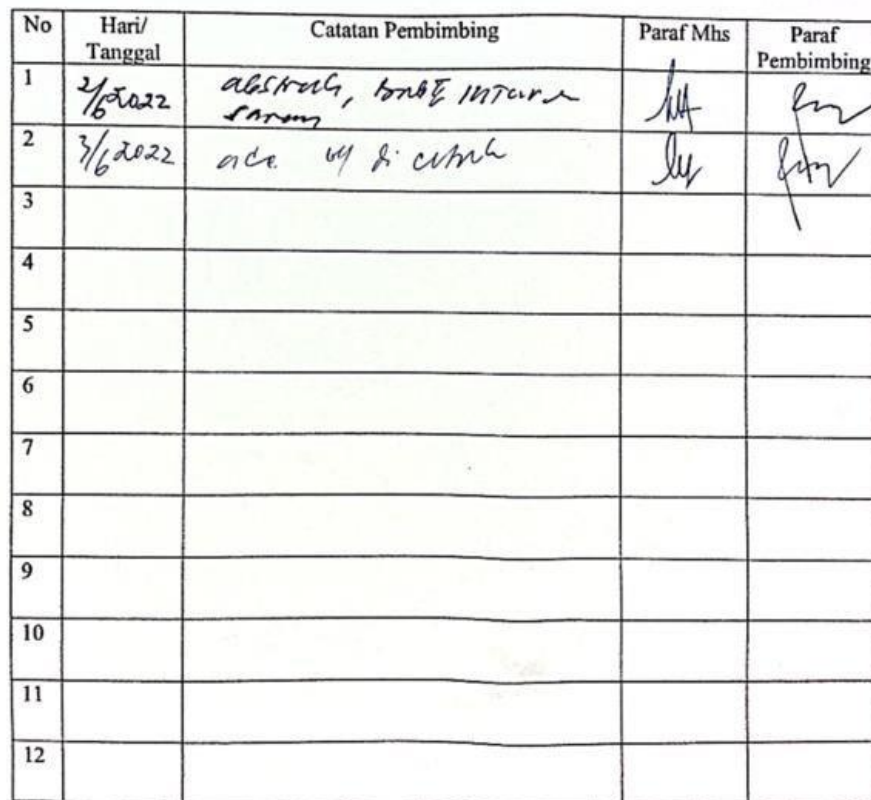 No Hari/ Tanggal Catatan Pembimbing Paraf Mhs Paraf Pembimbing
1 2/6 2022 abstrak,
saran
2 3/6 2022 di
3
4
5
6
7
8
9
10
11
12